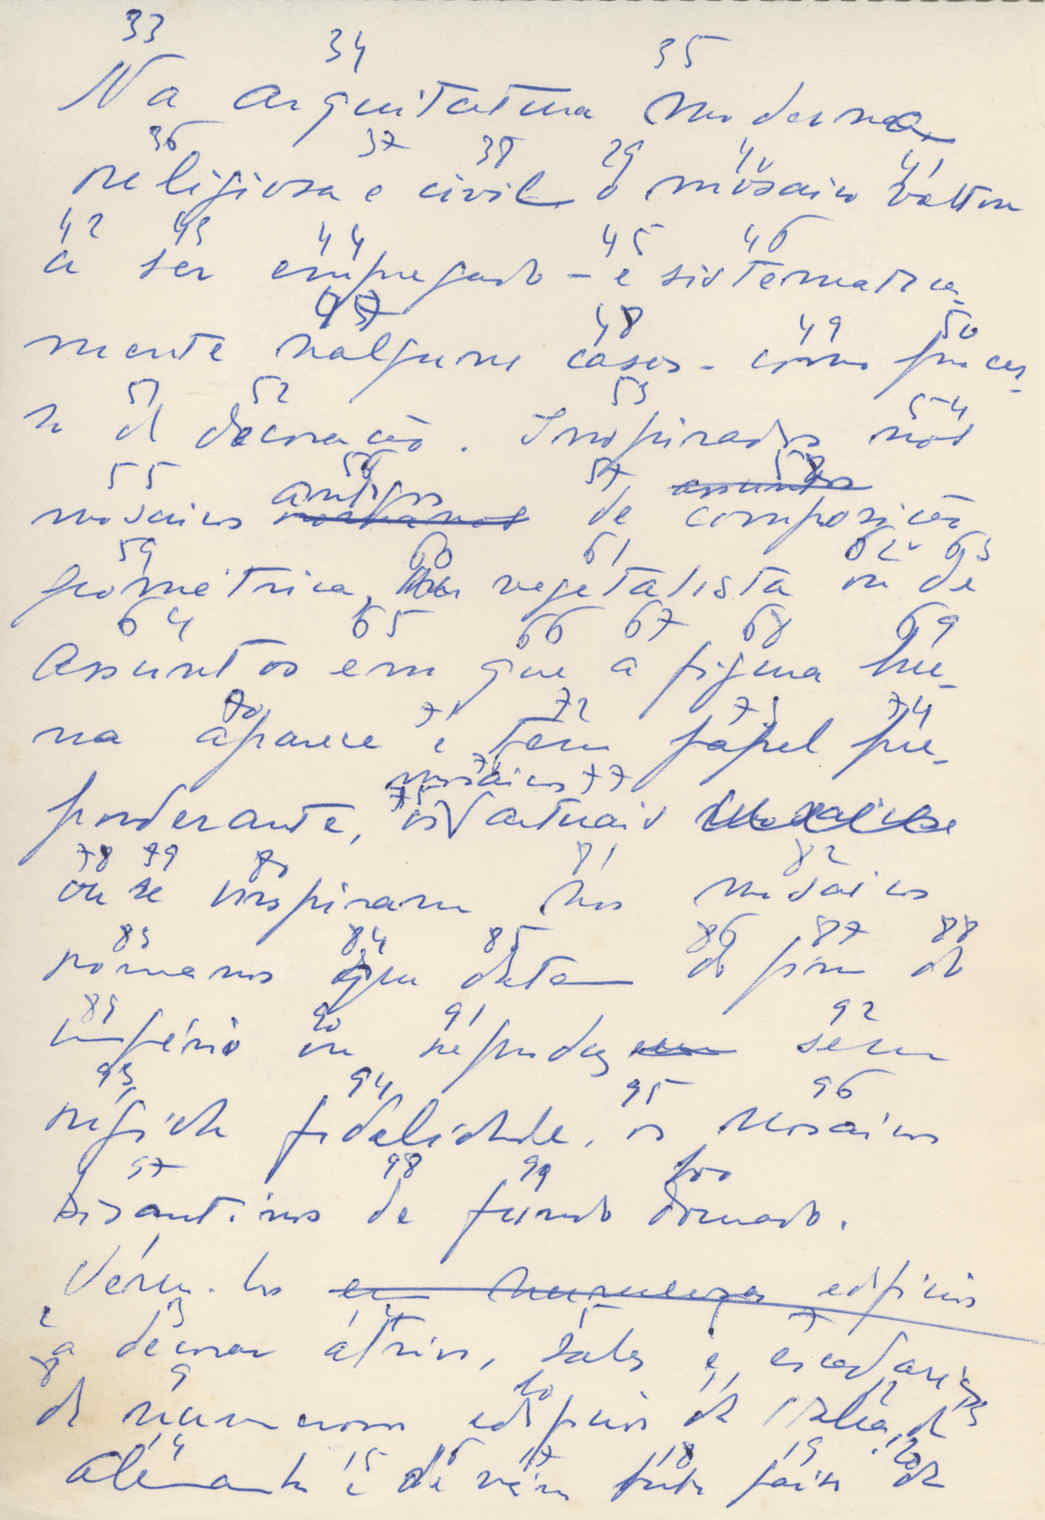 33 34 35
Na arquitectura moderna
36 37 38 39 40 41
religiosa e civil o mosaico voltou
42 43 44 45 46
a ser empregado - e sistematica-
47 48 49 50
mente nalguns casos - como proces-
51 52 53 54
so de decoração. Inspirados nos
55 56 57 58
antigos assuntos
mosaicos romanos de composição
59 60 61 62 63
geométrica, vegetalista ou de
64 65 66 67 68 69
assuntos em que a figura hu-
70 71 72 73 74
na aparece e tem papel pre-
mosaicos 76 77
75
ponderante, os actuais mosaicos
78 79 80 81 82
ou se inspiram nos mosaicos
83 84 85 86 87 88
romanos que datam do fim do
89 90 91 92
império ou reproduzem sem
93 94 95 96
rígida fidelidade, os mosaicos
97 98 99 100
bizantinos de fundo dourado.
1
Vêem-los em numerosos edifícios
2 3 4 5 6 7
a decorar átrios, salas e escadarias
8 9 10 11 12 13
de numerosos edifícios da Itália, da
14 15 16 17 18 19 20
Alemanha e de vários outros países da